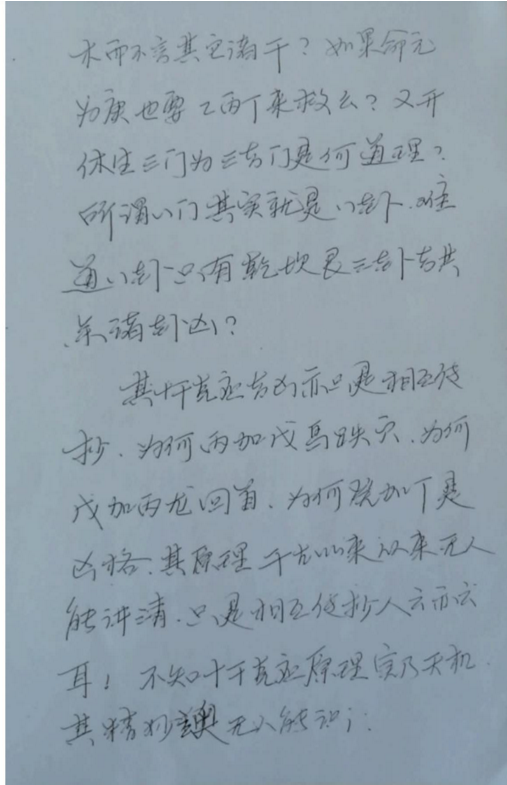 求而不言其它诸干？如果命元
为庚也要乙丙丁来救么？又开
休生三门为三吉门是何道理？
所谓八门其实就是八卦.难
道八卦只有乾坎艮三卦吉其
余诸卦凶？
其十干克应吉凶亦只是相互传
抄.为何丙加戊鸟跌穴.为何
戊加丙龙回首.为何癸加丁是
凶格.其原理千古以来从来无人
能讲清.只是相互传抄人云亦云
耳！不知十干克应原理实乃天机.
其精妙奥无人能识；